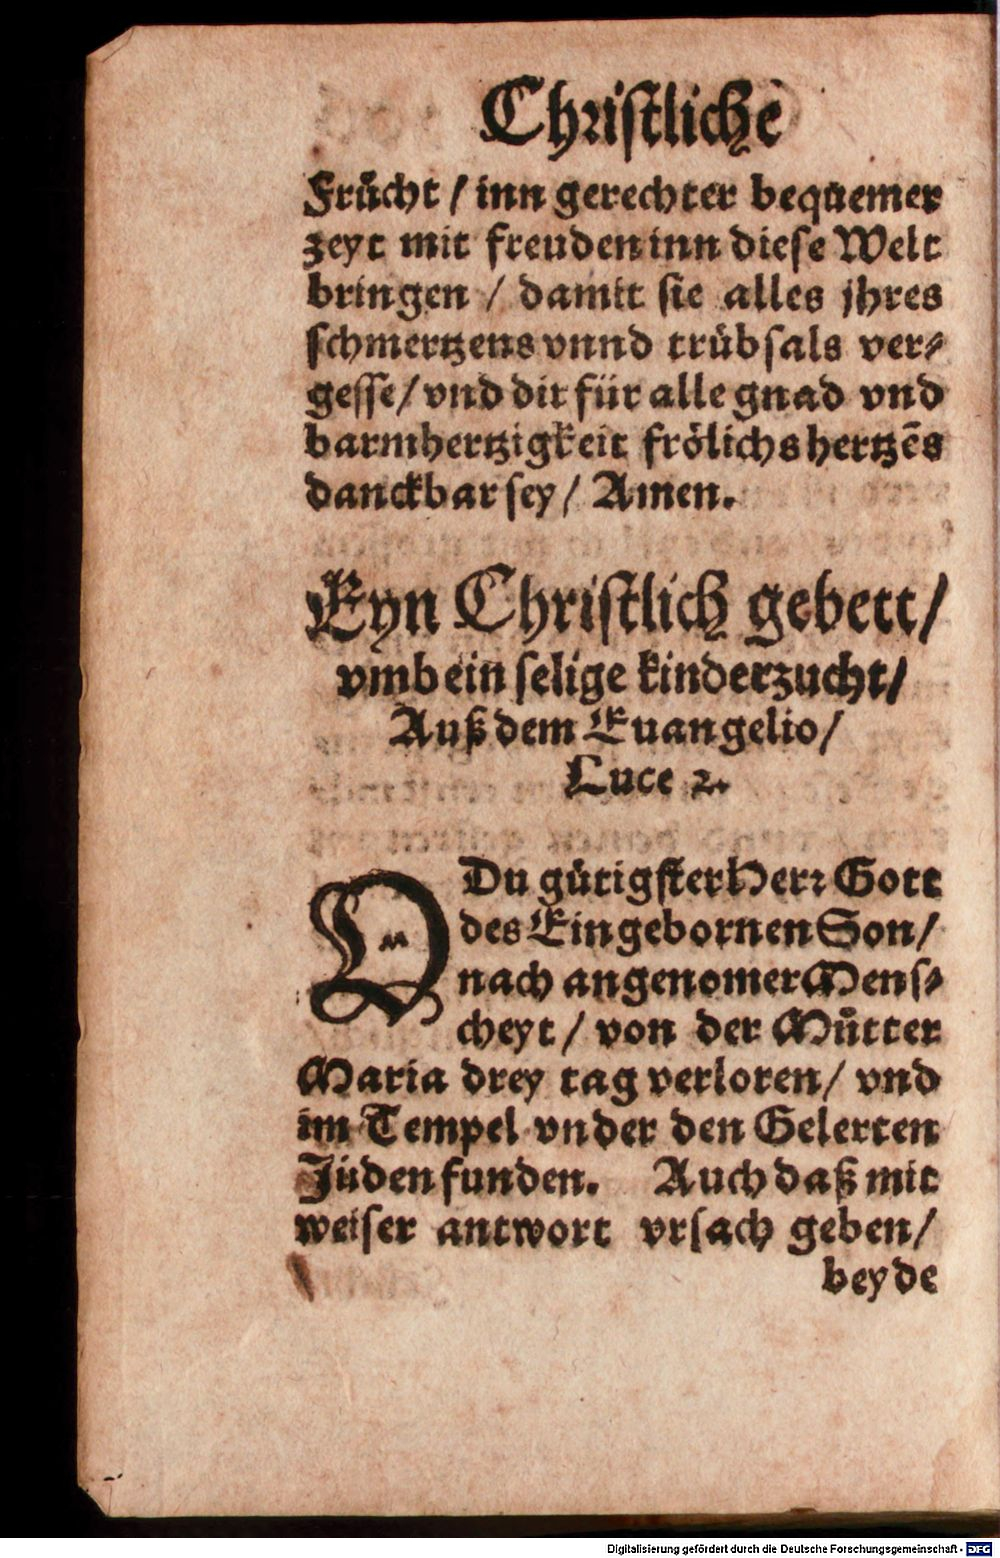 Christliche
Frůcht / inn gerechter bequemer
zeyt mit freuden inn diese Welt
bringen / damit sie alles jhres
schmertzens vnnd trübsals ver⸗
gesse / vnd dir für alle gnad vnd
barmhertzigkeit frölichs hertzēs
danckbar sey / Amen.
Eyn Christlich gebett /
vmb ein selige kinderzucht /
Auß dem Euangelio /
Luce 2.
O Du gütigster Herr Gott
des Eingebornen Son /
nach angenomer Mens⸗
cheyt / von der Můtter
Maria drey tag verloren / vnd
im Tempel vnder den Gelerten
Jüden funden. Auch daß mit
weiser antwort vrsach geben /
beyde
Digitalisierung gefördert durch die Deutsche Forschungsgemeinschaft - DFG